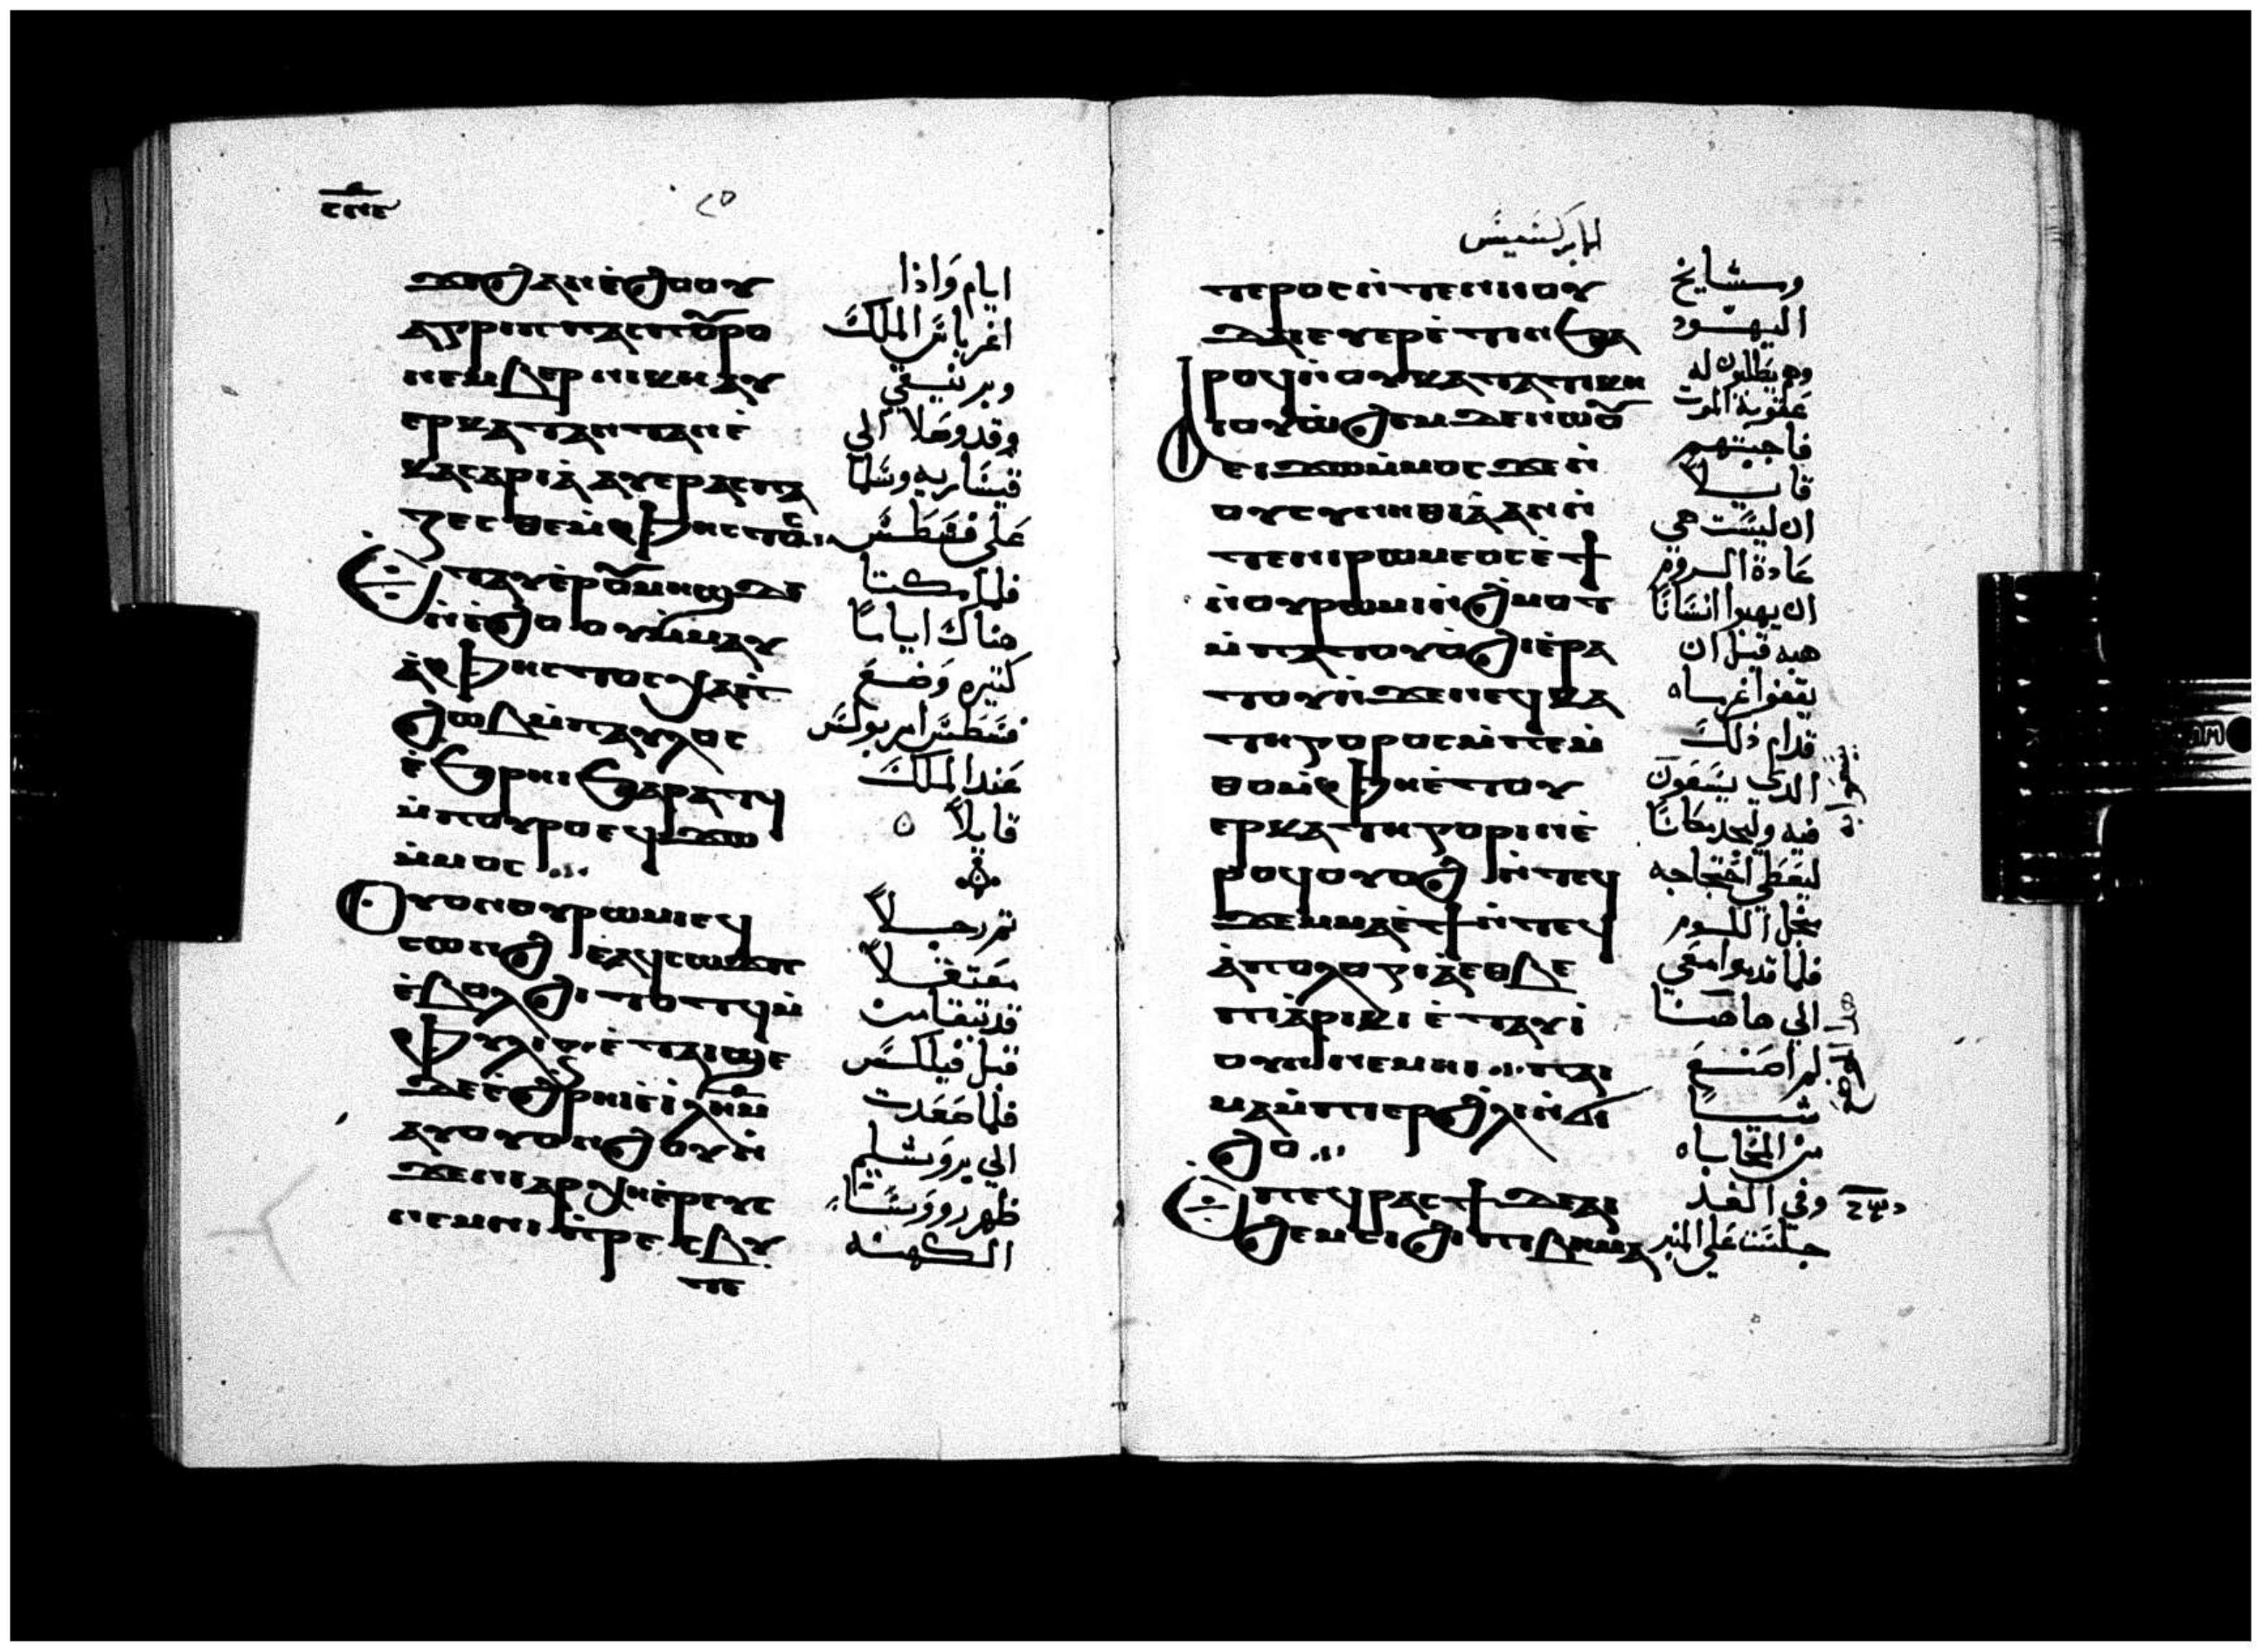 ϫⲉϩⲁⲛⲉ̀ϩⲟⲟⲩ
ⲁⲅⲣⲓⲡⲡⲁⲥⲡⲟⲩⲣⲟ
ⲛⲉⲙⲃⲉⲣⲛⲓⲕⲏⲁⲩ
ⲉⲣⲕⲁⲧⲁⲛⲧⲁⲛⲉ̀
ⲕⲉⲥⲁⲣⲓⲁ̀ ⲁⲩⲉⲣⲁⲥⲡⲁ
ⲍⲉⲥⲑⲉⲙ̀ⲫⲏⲥⲧⲟⲥ
ⲉⲧⲁⲩⲉ̀ⲣⲟⲩⲙⲏϣϫⲉ
ⲛ̀ⲉ̀ϩⲟⲟⲩⲙ̀ⲙⲁⲩ
ⲁ̀ⲫⲏⲥⲧⲟⲥⲭⲁⲡ
ϩⲱⲃⲙ̀ⲡⲁⲩⲗⲟⲥ
ⲉ̀ϧⲣⲏⲓϧⲁⲣⲁⲧϥ
ⲙ̀ⲡⲟⲩⲣⲟⲉϥϫⲱ
ⲙ̀ⲙⲟⲥ
ⲟⲩⲟⲛⲟⲩⲣⲱⲙⲓⲉϥ
ⲥⲱⲛϩ ⲉ̀ⲁϥⲥⲱϫⲡ
ⲉ̀ⲃⲟⲗϩⲓⲧⲟⲧϥⲙ̀
ⲫⲩⲗⲓⲝ ⲉ̀ⲧⲁⲓϣⲉ
ϫⲉⲉ̀ϩⲣⲏⲓⲉ̀ⲓⲗⲏⲙ
ⲁⲩⲟⲩⲟⲛϩⲟⲩⲛ̀
ϫⲉⲛⲓⲁⲣⲭⲏⲉ̀ⲣⲉⲩⲥ
ⲛⲉⲙⲛⲓⲡ̀ⲣⲉⲥⲃⲩ
ⲧⲉ
ايام وَاذا
اغرباس الملك
وبرنيقي
وقد وصلا الى
قيسَاريه وسَلما
عَلى فسطس
فلما مكتا
هناك اياماً
كتيره وَضعَ
فسطس امر بولس
عَند الملك
قايلاً
تم رجلاً
معتقلاً
قد تبقا من
قبل فيلكس
فلما صَعَدت
الي يروشليم
ظهر رووَسَا
الكهنه
ابركسيس
ⲧⲉⲣⲟⲥⲛ̀ⲧⲉⲛⲓⲓⲟⲩ
ϫⲁⲓⲉⲩⲉⲣⲉ̀ⲧⲓⲛϧⲁ
ⲣⲟϥⲛ̀ⲟⲩⲕⲁⲧⲁⲧⲓⲕⲏ
ⲉⲓϫⲱⲙ̀ⲙⲟⲥϫⲉⲛ̀
ⲟⲩⲥⲩⲛⲏⲑⲓⲁ̀ⲁⲛⲛ̀
ⲧⲉⲛⲓⲣⲱⲙⲉⲟⲥⲉ̀ϯ
ⲛ̀ⲟⲩⲣⲱⲙⲓⲛ̀ϩⲙⲟⲧ
ⲙ̀ⲡⲁⲧⲟⲩⲟ̀ϩⲓⲉ̀ⲣⲁ
ⲧⲟⲩⲛ̀ϫⲉⲛⲉϥⲕⲁ
ⲧⲏⲅⲟⲣⲟⲥⲙ̀ⲡⲉⲙ̀
ⲑⲟⲙ̀ⲫⲏⲉ̀ⲧⲟⲩ
ⲉⲣⲕⲁⲧⲏⲅⲟⲣⲓⲛⲉ̀
ⲣⲟϥⲟⲩⲟϩ ⲛ̀ⲧⲉϥ
ϫⲉⲙⲙⲁⲉ̀ϯⲛ̀ⲧⲉϥ
ⲁ̀ⲡⲟⲗⲟⲅⲓⲁ̀ⲉⲑⲃⲉ
ⲡⲓⲁ̀ⲣⲓⲕⲓ ⲉ̀ⲧⲁⲩⲓ̀
ⲟⲩⲛⲛⲉⲙⲏⲓ ⲙ̀ⲡⲁⲓ
ⲙⲁⲙ̀ⲡⲓⲉⲣϩⲗⲓⲛ̀ϭⲓ
ϩⲟ
ⲡⲉϥⲣⲁⲥϯϫⲉⲁⲓ
ϩⲉⲙⲥⲓϩⲓⲡⲓⲃⲏⲙⲁ
ومشايخ
اليهود
وهم يطلبون له
عَقوبة الموت
فاجبتهم
قايلاً
ان ليسَت هي
عَادة الروم
ان يهبوا انسَانا
هبه قبل ان
يقفوا غرماه
قدام ذلك
الدي يسَعَون
فيه وليجد مكاناً
ليعَطي احتجاجه
مجل اللوم
فلما قدموا معَي
الي هاهنا
لم اصنعَ
شياً
من المحَاباه
وفي الغد
جلسَت عَلي المنبر